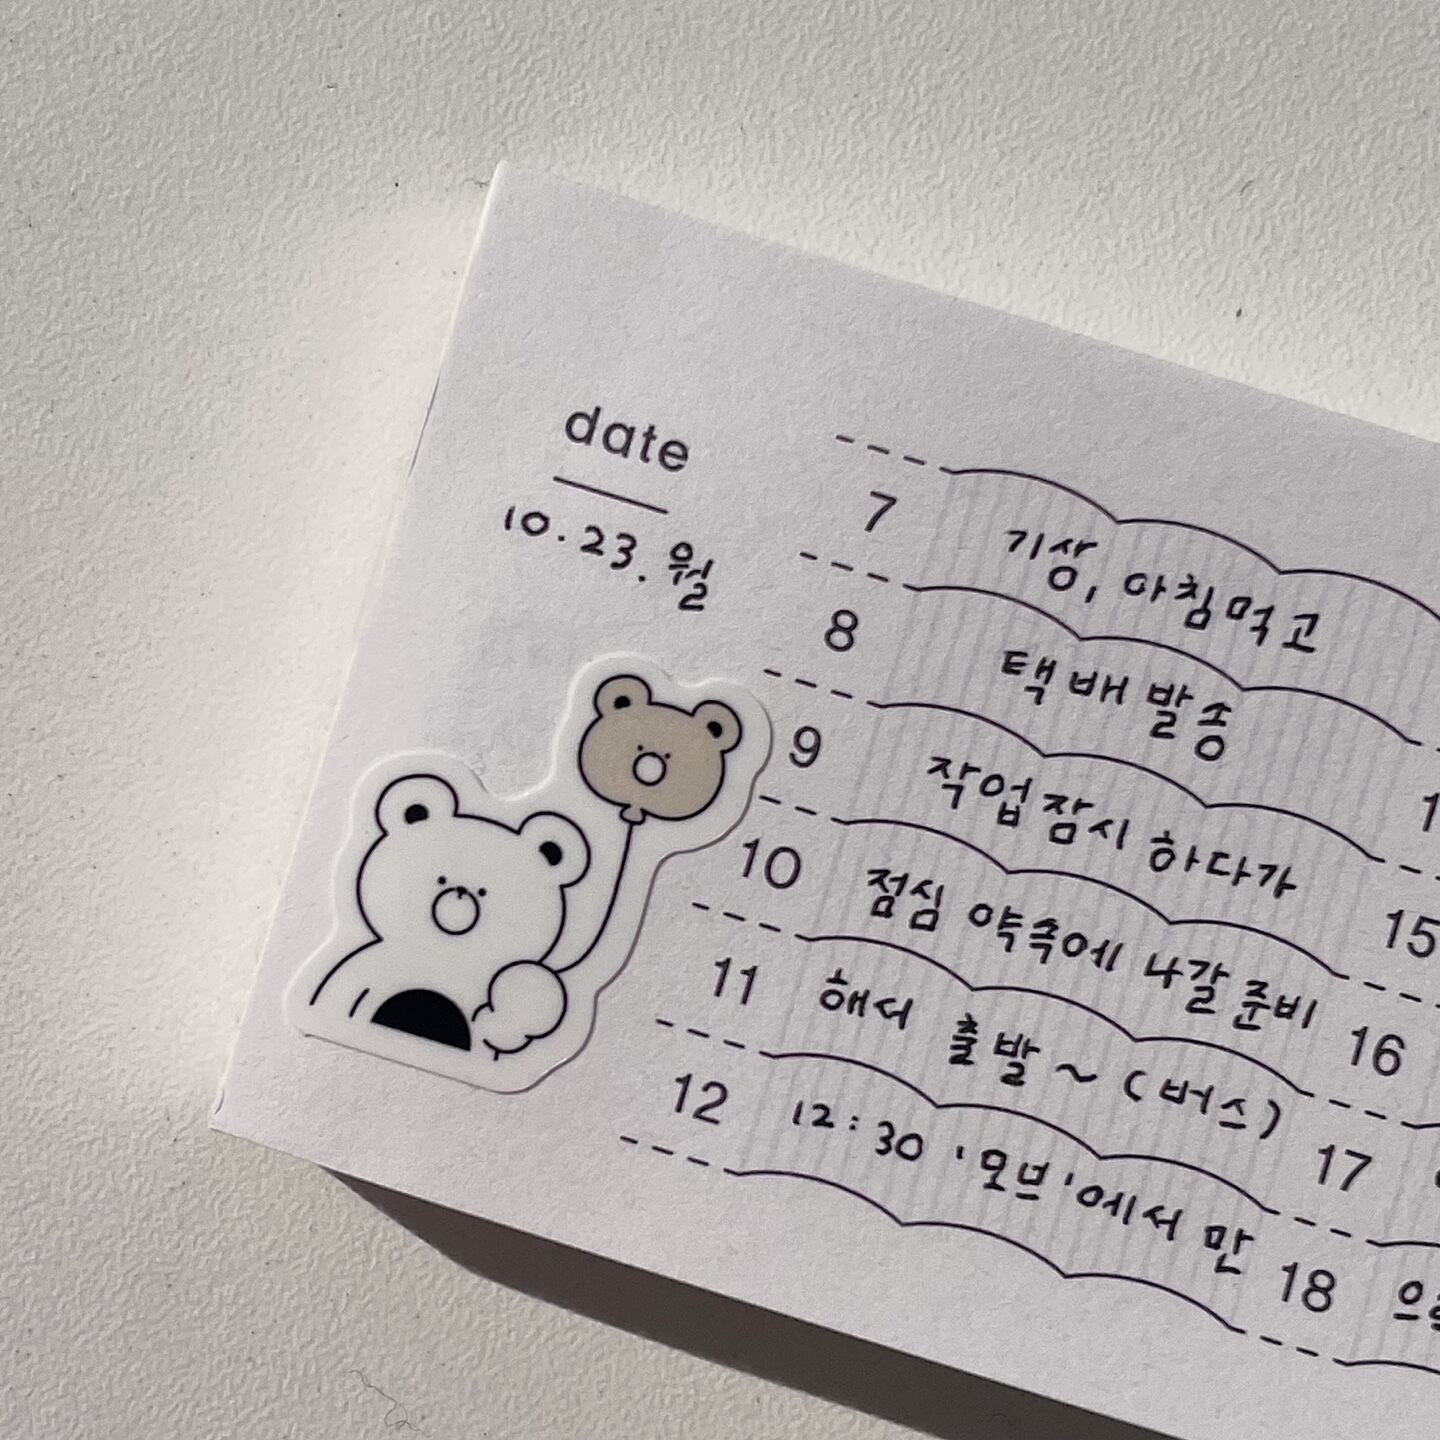 date
10.23.월
7 기상, 아침먹고
8 택배 발송
9 작업 잠시 하다가
10 점심 약속에 나갈 준비
11 해서 출발~ (버스)
12 12:30 '모브'에서 만
15
16
17
18